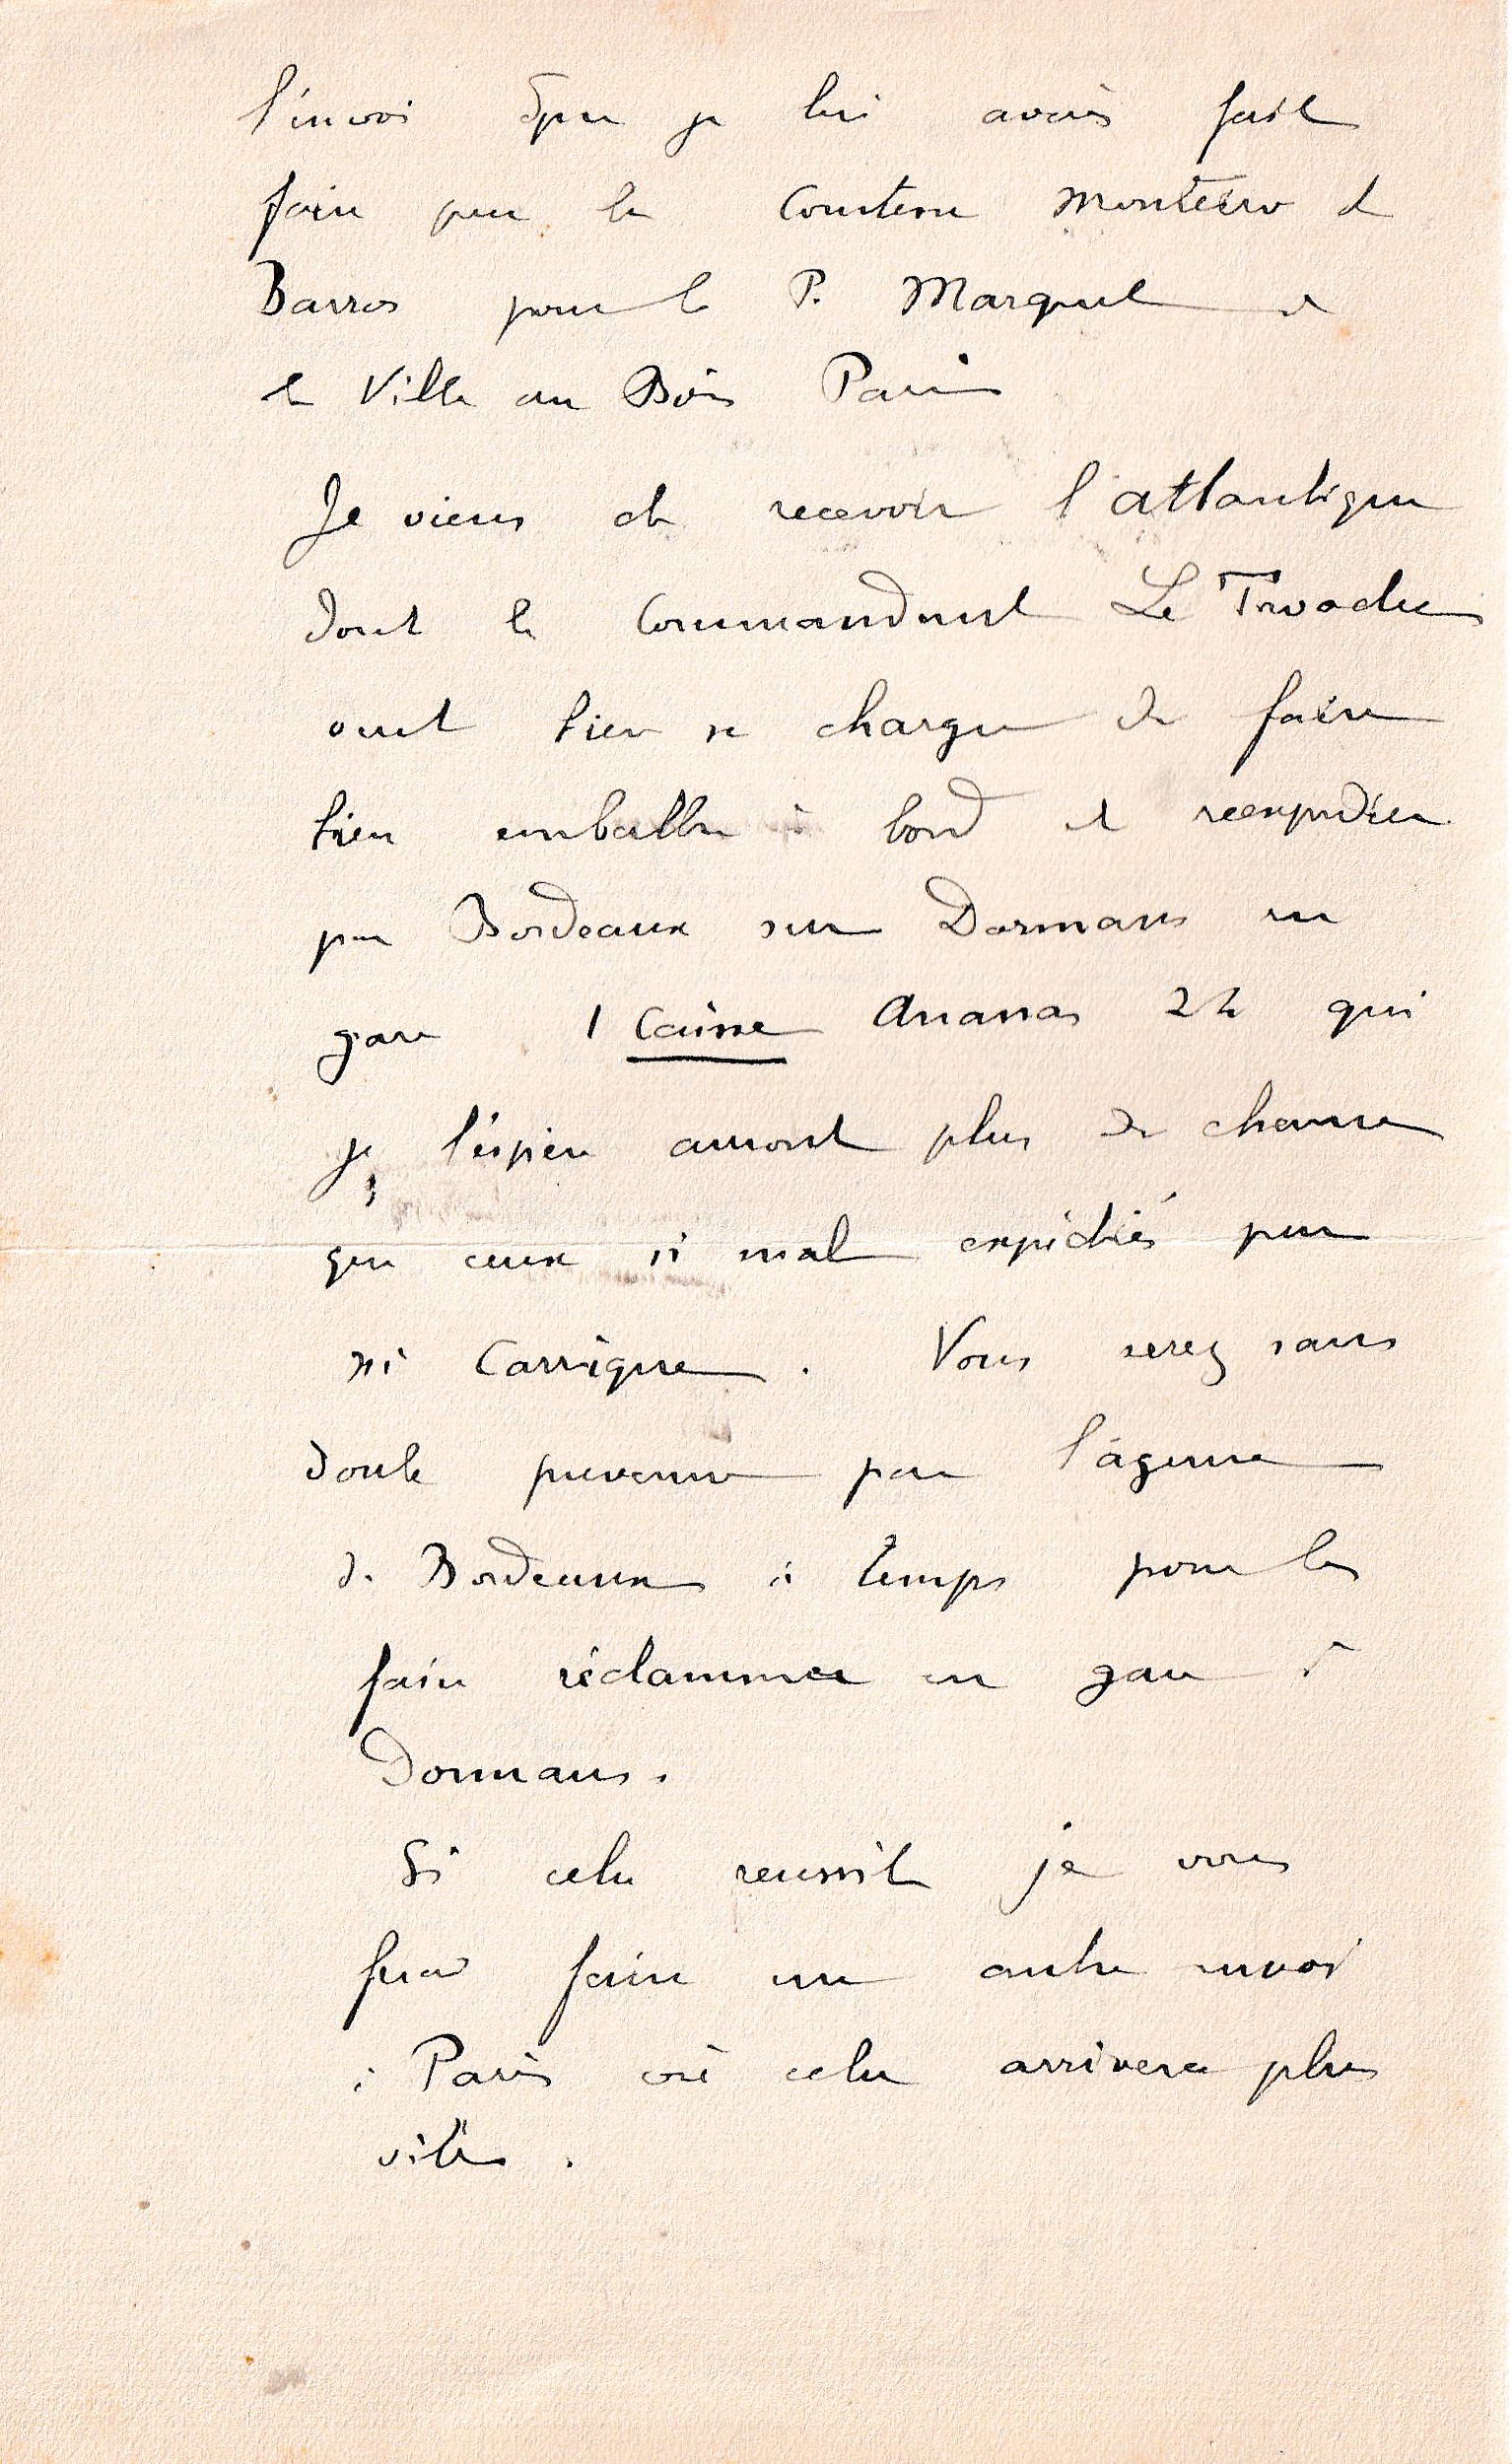 l'envoi que je lui avais fait
faire par la Comtesse Monteiro de
Barros pour le P. Marquet de
la Ville au Bois Paris
Je viens de recevoir l'atlantique
dont le Commandant Le Troadec
veut bien se charger de faire
bien emballer à bord et reexpedier
par Bordeaux sur Dormans en
gare 1 Caisse Ananas 24 qui
je l'éspère auront plus de chance
que ceux si mal expédiés par
Carrique. Vous serez sans
doute prevenue par l'agence
de Bordeaux à temps pour les
faire réclammer en gare à
Dormans.
Si cela reussit je vous
ferai faire un autre envoi
à Paris où cela arrivera plus
vite.